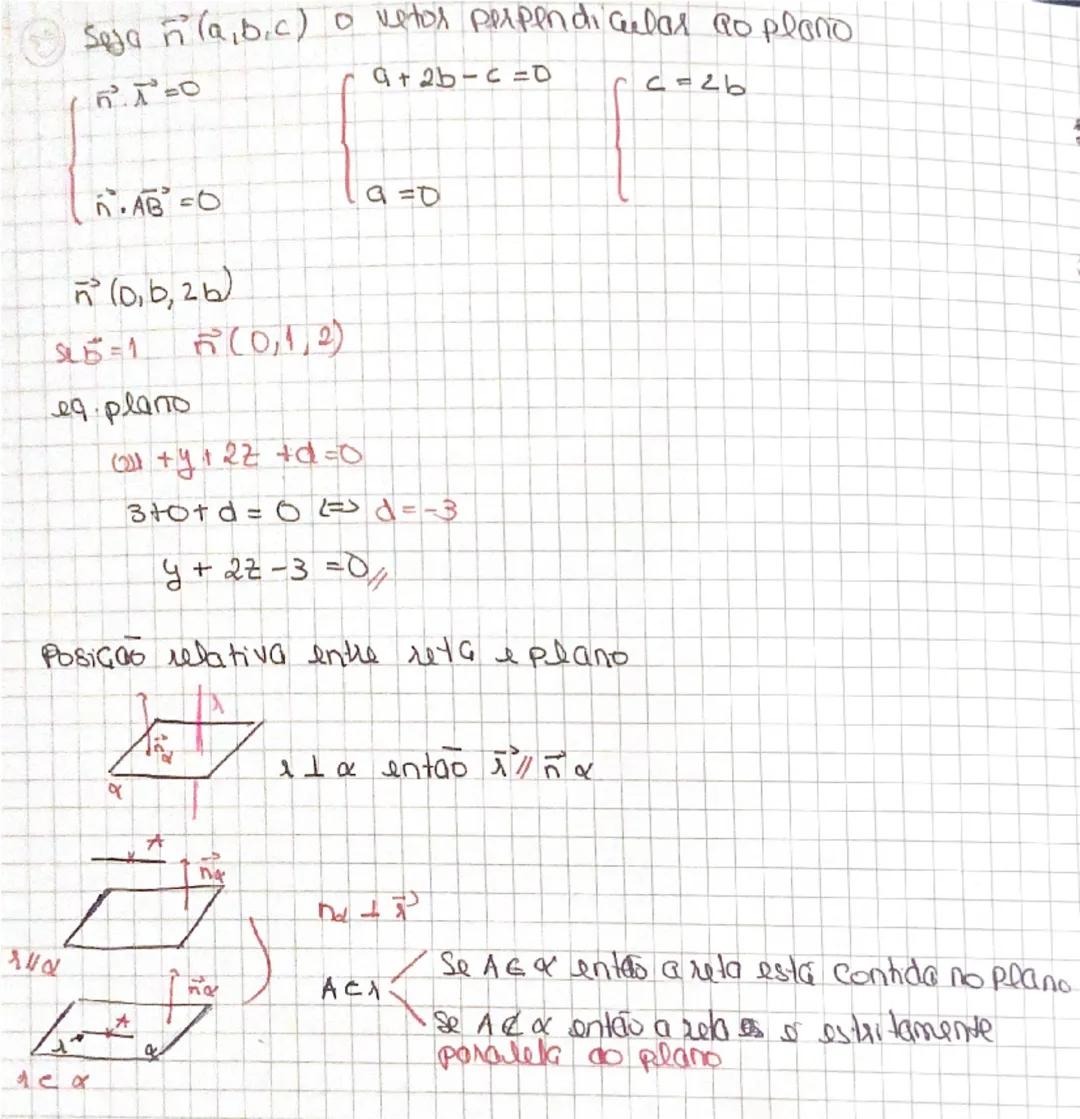 Seja n⃗ (a,b,c) o vetor perpendicular ao plano
{ n⃗ . r⃗ = 0 { a + 2b - c = 0 { c = 2b
n⃗ . AB⃗ = 0 a = 0
n⃗ (0, b, 2b)
se b = 1 n⃗ (0, 1, 2)
eq. plano
0x + y + 2z + d = 0
3 + 0 + d = 0 <=> d = -3
y + 2z - 3 = 0 //
Posição relativa entre reta e plano
r
n⃗ α
α
r ⊥ α então r⃗ // n⃗ α
A
n⃗α
nα ⊥ r⃗
r // α
Se A ∈ α então a reta está contida no plano
n⃗α
A ∈ r
A
Se A ∉ α então a reta é estritamente
r α
paralela ao plano
r ⊂ α